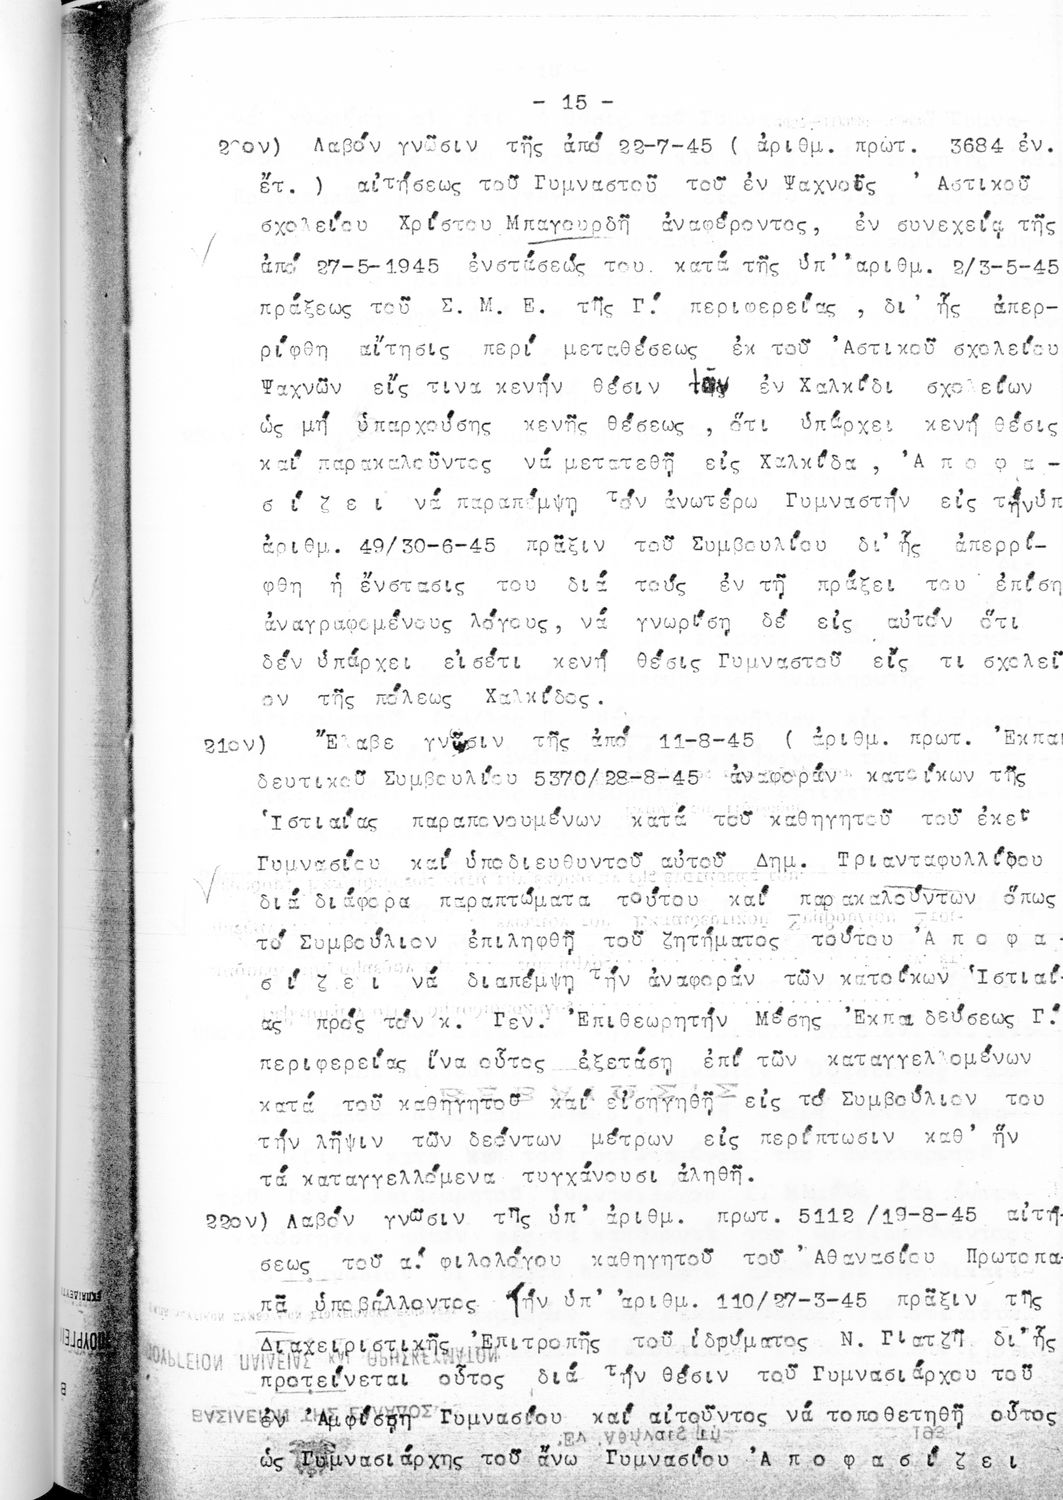 - 15 -
20ον) Λαβόν γνῶσιν τῆς ἀπό 22-7-45 ( ἀριθμ. πρώτ. 3684 ἐν.
ἔτ. ) αἰτήσεως τοῦ Γυμναστοῦ τοῦ ἐν Ψαχνοῖς ' Ἀστικοῦ
σχολείου Χρίστου Μπαγουρδῆ ἀναφέροντος, ἐν συνεχείᾳ τῆς
ἀπό 27-5-1945 ἐνστάσεώς του κατά τῆς ὑπ''αριθμ. 2/3-5-45
πράξεως τοῦ Σ. Μ. Ε. τῆς Γ.' περιφερείας , δι' ἧς ἀπερ-
ρίφθη αἴτησις περί μεταθέσεως ἐκ τοῦ Ἀστικοῦ σχολείου
Ψαχνῶν εἴς τινα κενήν θέσιν τῶν ἐν Χαλκίδι σχολείων
ὡς μή ὑπαρχούσης κενῆς θέσεως , ὅτι ὑπάρχει κενή θέσις
καί παρακαλοῦντος νά μετατεθῇ εἰς Χαλκίδα , Ἀ π ο φ α -
σ ί ζ ε ι νά παραπέμψῃ τόν ἀνωτέρω Γυμναστήν εἰς τήν ὑπ
ἀριθμ. 49/30-6-45 πρᾶξιν τοῦ Συμβουλίου δι' ἧς ἀπερρί-
φθη ἡ ἔνστασις του διά τούς ἐν τῇ πράξει του ἐπίση
ἀναγραφομένους λόγους, νά γνωρίσῃ δέ εἰς αὐτόν ὅτι
δέν ὑπάρχει εἰσέτι κενή θέσις Γυμναστοῦ εἴς τι σχολεῖ
ον τῆς πόλεως Χαλκίδος.
21ον) Ἔλαβε γνῶσιν τῆς ἀπό 11-8-45 ( ἀριθμ. πρωτ. Ἐκπαι
δευτικοῦ Συμβουλίου 5370/28-8-45 ἀναφοράν κατοίκων τῆς
Ἱστιαίας παραπονουμένων κατά τοῦ καθηγητοῦ τοῦ ἐκεῖ
Γυμνασίου καί ὑποδιευθυντοῦ αὐτοῦ Δημ. Τριανταφυλλίδου
διά διάφορα παραπτώματα τούτου καί παρακαλούντων ὅπως
τό Συμβούλιον ἐπιληφθῇ τοῦ ζητήματος τούτου Ἀ π ο φ α -
σ ί ζ ε ι νά διαπέμψῃ τήν ἀναφοράν τῶν κατοίκων Ἱστιαί-
ας πρός τόν κ. Γεν. Ἐπιθεωρητήν Μέσης Ἐκπαιδεύσεως Γ.'
περιφερείας ἵνα οὗτος ἐξετάσῃ ἐπί τῶν καταγγελλομένων
κατά τοῦ καθηγητοῦ καί εἰσηγηθῇ εἰς τό Συμβούλιον του
τήν λῆψιν τῶν δεόντων μέτρων εἰς περίπτωσιν καθ' ἥν
τά καταγγελλόμενα τυγχάνουσι ἀληθῆ.
22ον) Λαβόν γνῶσιν τῆς ὑπ' ἀριθμ. πρωτ. 5112 /19-8-45 αἰτή-
σεως τοῦ α.' φιλολόγου καθηγητοῦ τοῦ Ἀθανασίου Πρωτοπα-
πᾶ ὑποβάλλοντος τήν ὑπ' ἀριθμ. 110/27-3-45 πρᾶξιν τῆς
Διαχειριστικῆς Ἐπιτροπῆς τοῦ ἱδρύματος Ν. Γιατζῆ δι' ἧς
προτείνεται οὗτος διά τήν θέσιν τοῦ Γυμνασιάρχου τοῦ
ἐν Ἀμφίσσῃ Γυμνασίου καί αἰτοῦντος νά τοποθετηθῇ οὗτος
ὡς Γυμνασιάρχης τοῦ ἄνω Γυμνασίου Ἀ π ο φ α σ ί ζ ε ι